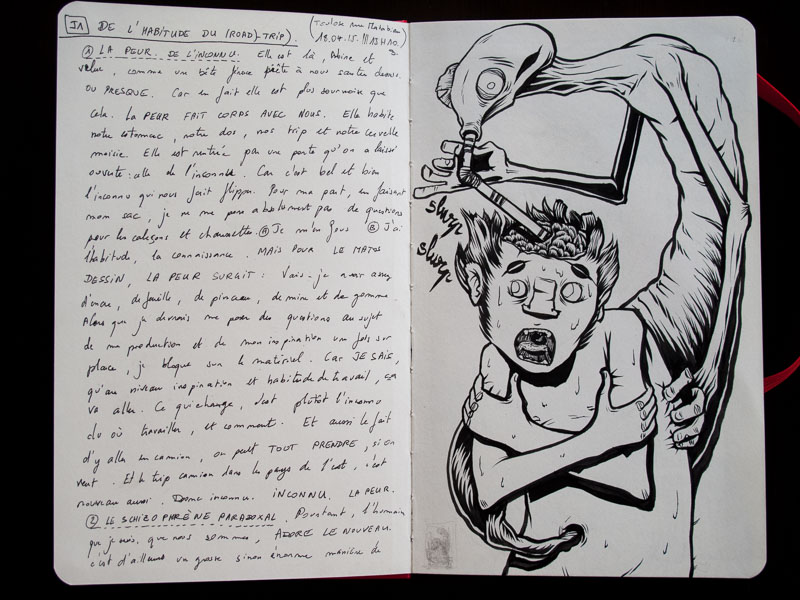 J1 DE L'HABITUDE DU (ROAD)-TRIP).
18.04.15. 13H10.
① LA PEUR DE L'INCONNU. Elle est là, et
velue, comme une bête féroce prête à nous sauter dessus.
OU PRESQUE. Car en fait elle est plus sournoise que
cela. La PEUR FAIT CORPS AVEC NOUS. Elle habite
notre estomac, notre dos, nos trip et notre cervelle
moisie. Elle est rentrée par une porte qu'on a laissé
ouverte: celle de l'inconnu. Car c'est bel et bien
l'inconnu qui nous fait flipper. Pour ma part, en faisant
mon sac, je ne me pose absolument pas de questions
pour les caleçons et chaussettes. Ⓐ Je m'en fous Ⓑ J'ai
l'habitude, la connaissance. MAIS POUR LE MATOS
DESSIN, LA PEUR SURGIT: Vais-je avoir assez
d'encre, de feuille, de pinceau, de mine et de gomme.
Alors que je devrais me poser des questions au sujet
de ma production et de mon inspiration une fois sur
place, je bloque sur le matériel. Car JE SAIS,
qu'au niveau inspiration et habitude de travail, ça
va aller. Ce qui change, c'est plutôt l'inconnu
du où travailler, et comment. Et aussi le fait
d'y aller en camion, on peut TOUT PRENDRE, si on
veut. Et le trip camion dans les pays de l'est, c'est
nouveau aussi. Donc inconnu. INCONNU. LA PEUR.
② LE SCHIZOPHRÈNE PARADOXAL. Pourtant, l'humain
que je suis, que nous sommes, ADORE LE NOUVEAU.
c'est d'ailleurs une grosse sinon énorme manière de
slurp
slurp